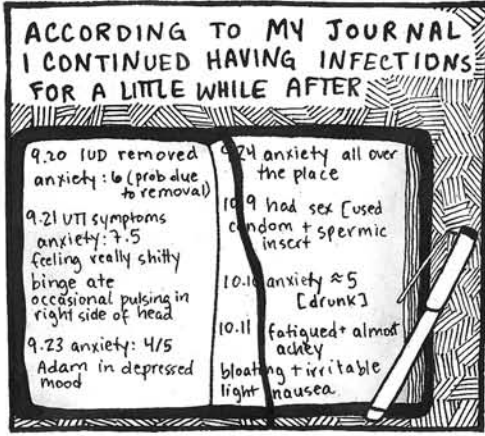 ACCORDING TO MY JOURNAL
I CONTINUED HAVING INFECTIONS
FOR A LITTLE WHILE AFTER
9.20 IUD removed
anxiety: 6 (prob due
to removal)
9.21 UTI symptoms
anxiety: 7.5
feeling really shitty
binge ate
occasional pulsing in
right side of head
9.23 anxiety: 4/5
Adam in depressed
mood
9.24 anxiety all over
the place
10.9 had sex [used
condom + spermic
insert
10.10 anxiety ≈ 5
[drunk]
10.11 fatigued + almost
achey
bloating + irritable
light nausea